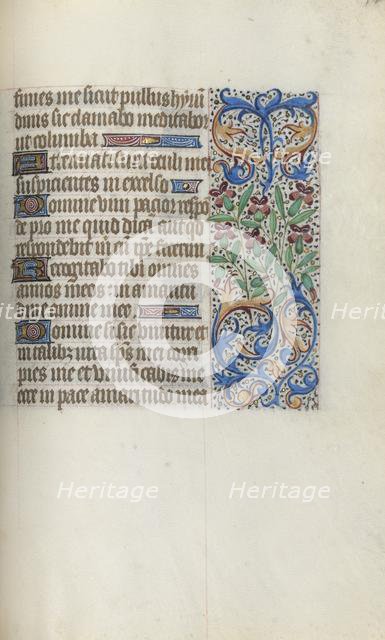 finies me sicut pullus hyrun
dinis sic clamabo meditabor
ut columba
Attenuati sunt oculi mei
suspicientes in excelso
Domine vim patior respo
de pro me quid dica aut q
respondebit m cu fecerit
Recogitabo tibi omnes
annos meos in amaritu
dine anime mee
Domine si sic vivitur et
in talib vita sps mei corri
pies me et vivificabis me
ecce in pace amaritudo mea
Heritage Heritage Heritage
Heritage Heritage
Heritage Heritage Heritage
Heritage Heritage